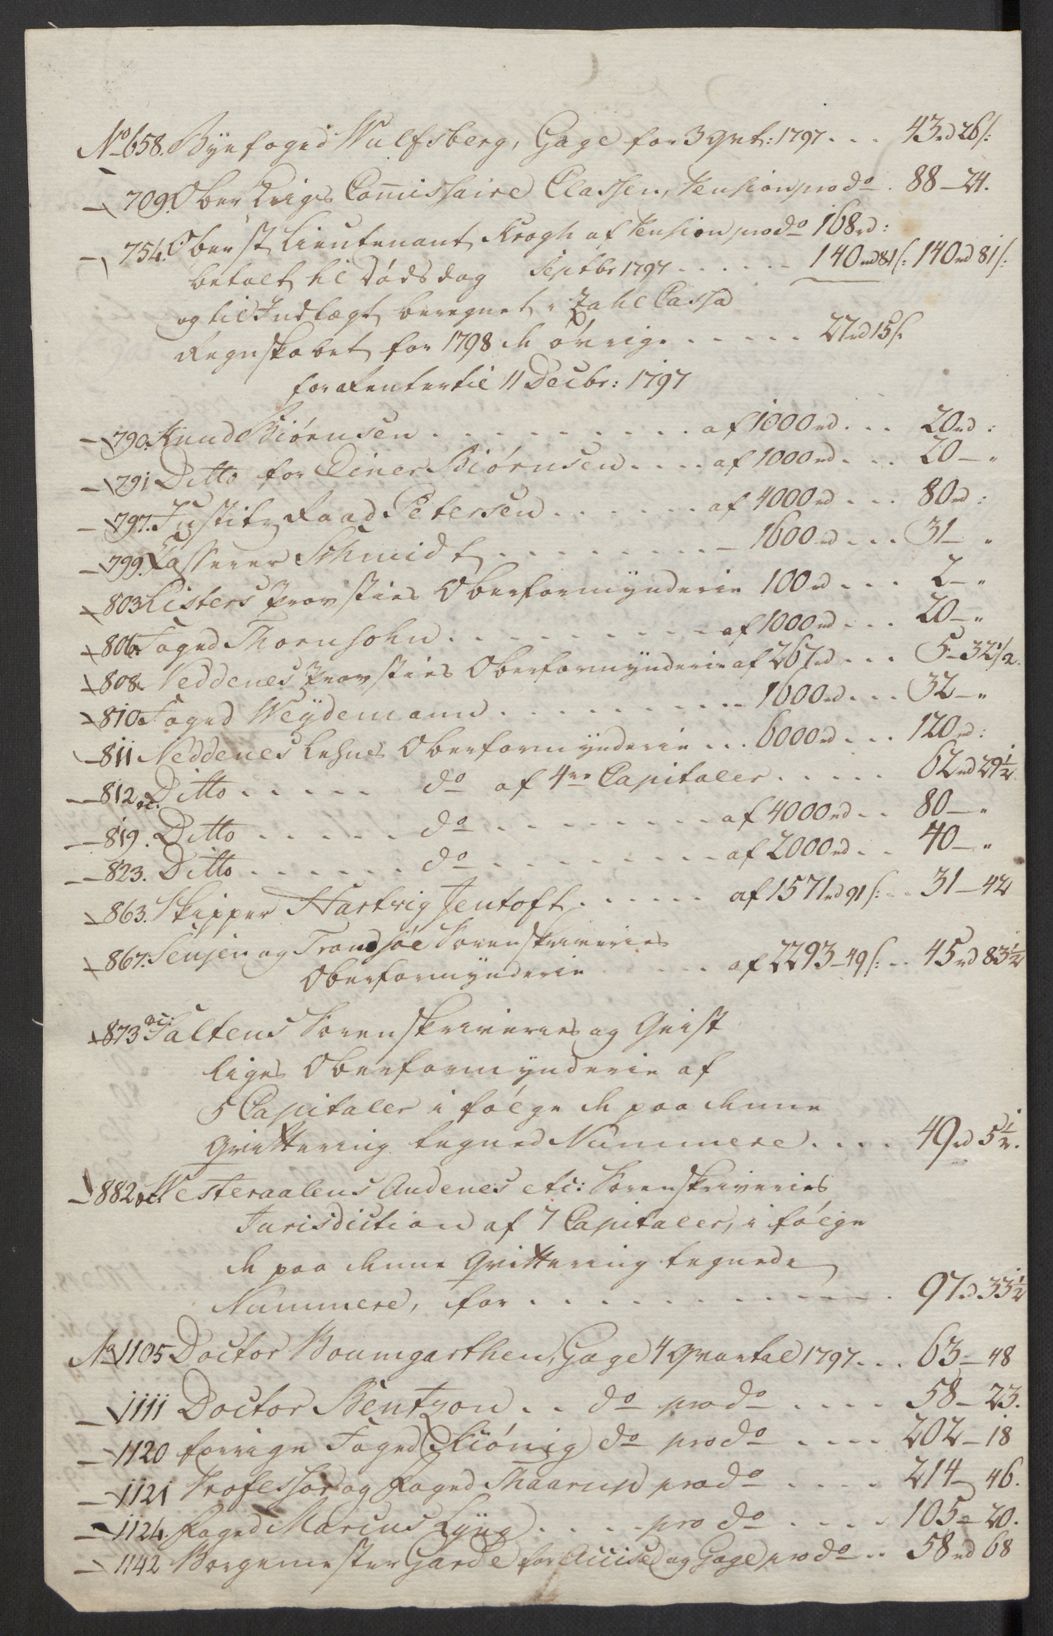 No 658. Byefoged Wulfsberg, Gage for 3 Qvt: 1797 . . . 43 rd 26 s:
— 709. Ober Krigs Com̄issaire Classen, Pension pro do . 88 — 24.
— 754. Oberst Lieutenant Krogh af Pension pro do 168 rd:
betalt til Døds dag Septbr 1797 . . . . . . 140 rd 81 s: 140 rd 81 s:
og til Indtægt beregnet i Zahl Cassa
Regnskabet for 1798 de øvrige . . . . . 27 rd 15 s.
for Renter til 11 Decbr: 1797
— 790. Knud Biørnsen . . . . . . . . . af 1000 rd . . . 20 rd :
— 791 Ditto for Einer Biørnsen . . . . af 1000 rd . . . 20 — "
— 797. Justits Raad Petersen . . . . . . af 4000 rd . . . 80 rd :
— 799. Casserer Schmidt . . . . . . . . — 1600 rd . . . 31 — "
— 803. Listers Provsties Oberformynderie 100 rd . . . 2 — "
— 806. Foged Thornsohn . . . . . . . . . af 1000 rd . . . 20 — "
— 808. Neddenes Provsties Oberformynderie af 267 rd . . . 5 — 32 1/2.
— 810. Foged Weydemann . . . . . . . . . — 1600 rd . . . 32 — "
— 811 Neddenes Lehns Oberformynderie . . . 6000 rd . . . 120 rd :
— 812 &c. Ditto . . . . . do af 4re Capitaler . . . . . 62 rd 29 1/2
— 819. Ditto . . . . . . do . . . . . . . . . af 4000 rd . . 80 — "
— 823. Ditto . . . . . . do . . . . . . . . . af 2000 rd . . 40 — "
— 863. Skipper Hartvig Jentoft . . . . . . af 1571 rd 91 s: . . 31 — 42
— 867. Senjen og Tromsøe Sorenskriveries
Oberformynderie . . . . af 2293 — 49 s: . . 45 rd 83 1/2
— 873 &c: Saltens Sorenskriveries og Geist
liges Oberformynderie af
5 Capitaler i følge de paa denne
Qvittering tegned Nummere . . . . 49 rd 5 1/2.
— 882 &c. Westeraalens Andenes etc: Sorenskriveries
Jurisdiction af 7 Capitaler, i følge
de paa denne Qvittering tegnede
Nummere, for . . . . . . . . . . . . . 97 rd 33 1/2
No 1105 Doctor Boumgarthen, Gage 4 Qvartal 1797 . . . 63 — 48
— 1111 Doctor Bentzon . . do pro do . . . . 58 — 23.
— 1120 forrige Foged Kiønig do pro do . . . . 202 — 18
— 1121 Professor og Foged Thaarup pro do . . . . . 214 — 46.
— 1124. Foged Marcus Lÿng . . . . . pro do . . . . . 105 — 20.
— 1142 Borgemester Garde for Accise og Gage pro do . . 58 rd 68